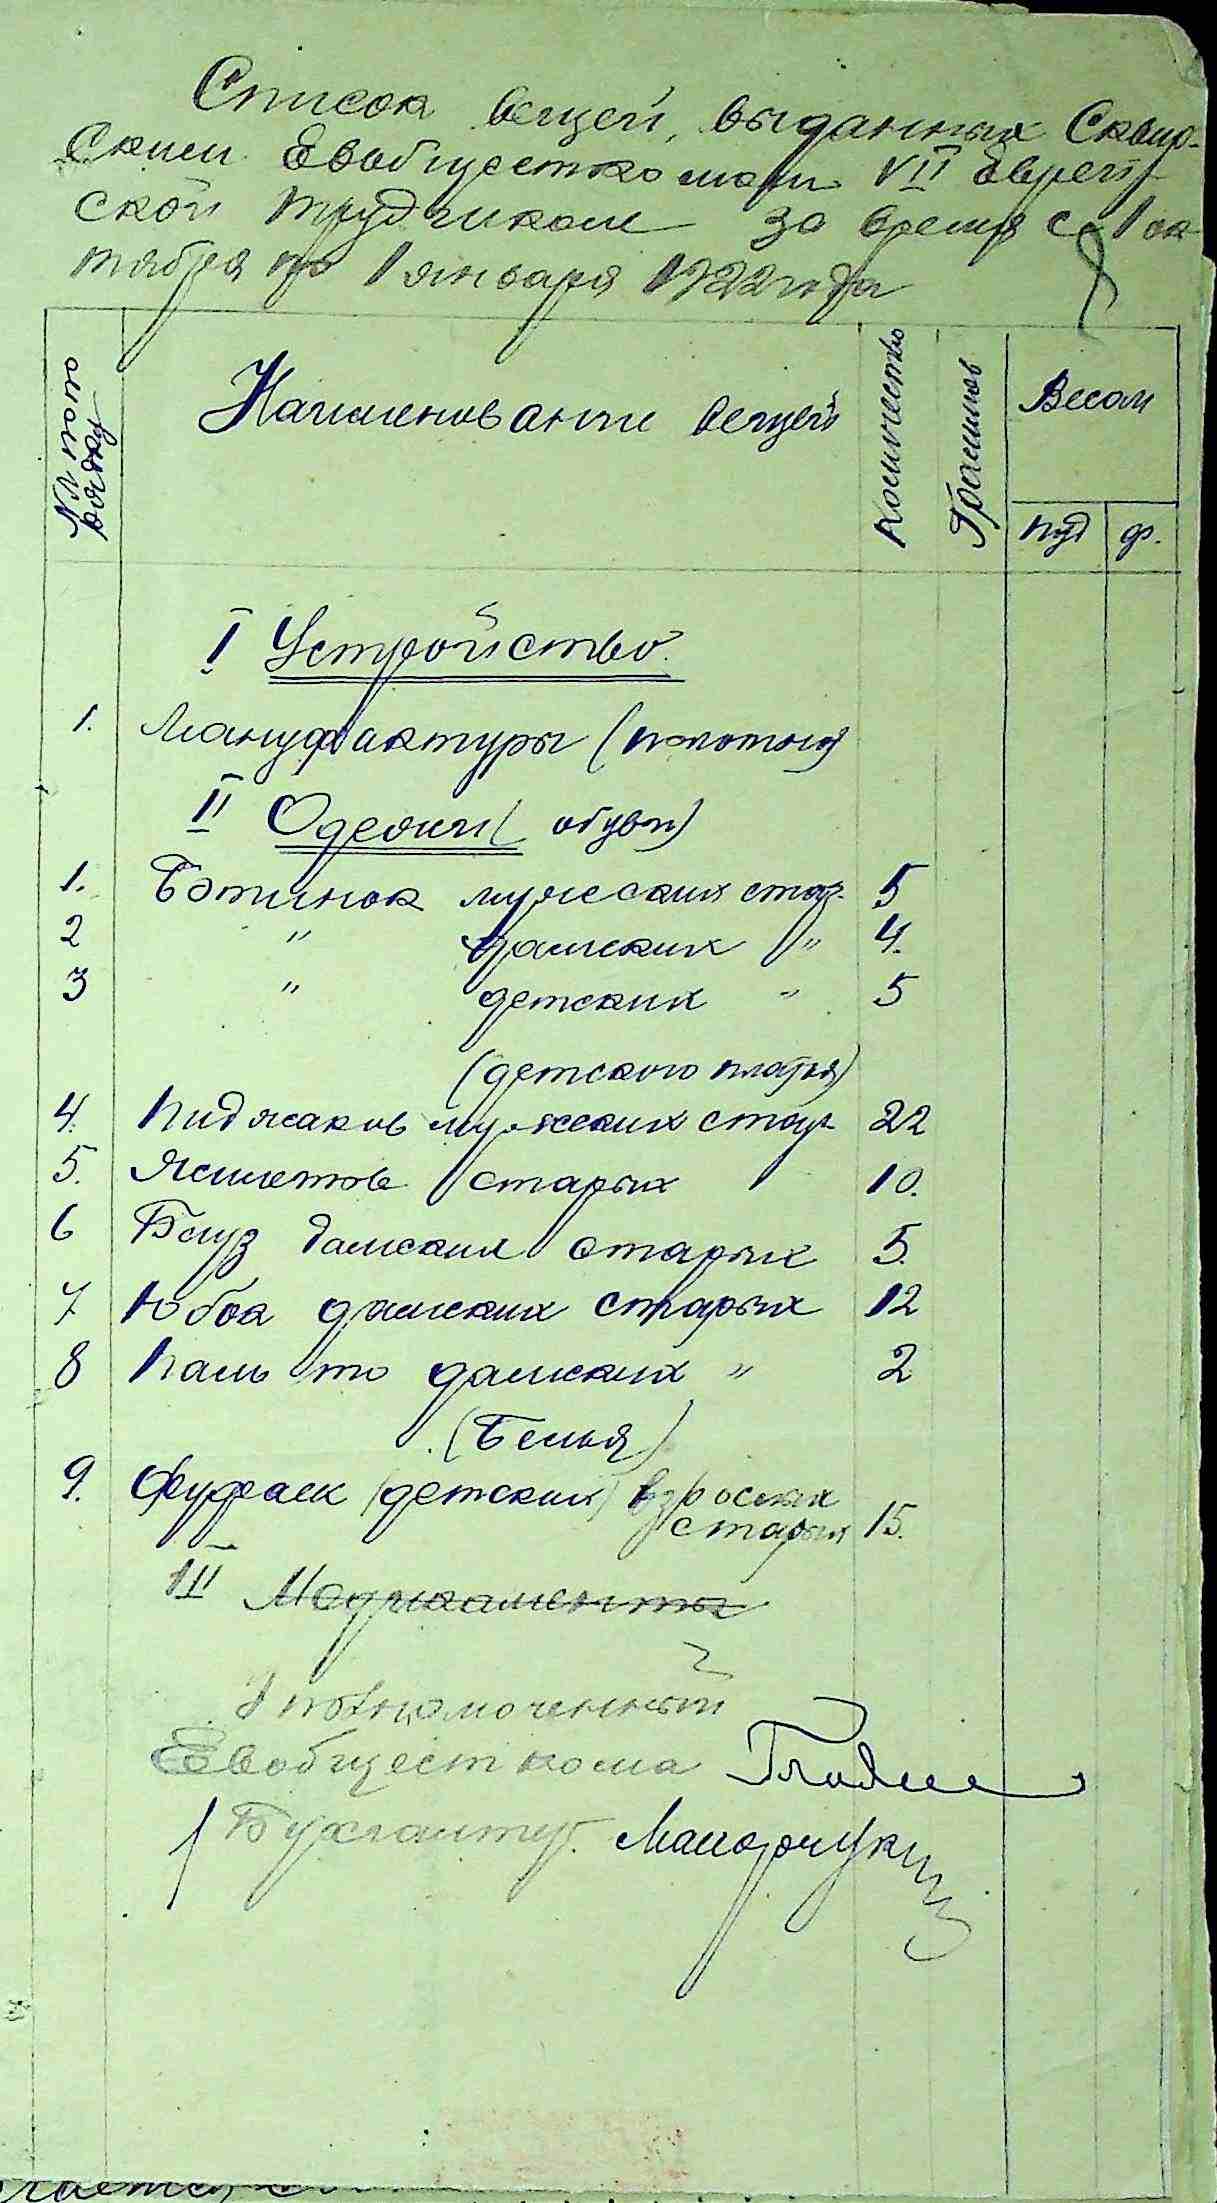 Список вещей, выданных Сквир-
ским Евобщесткомом VII Еврей-
ской трудшколе за время с 1 ок
тября по 1 января 1922 года
№№ по по
рядку
Наименование вещей
Количество
Аршинов
Весом
пуд
ф.
I Устройство
1. Мануфактуры (полотно)
II Одежи (обуви)
1. Ботинок мужских стар. 5
2 " дамских " 4.
3 " детских " 5
(детского платья)
4. Пиджаков мужских стар. 22
5. Жилетов старых 10.
6 Блуз дамских старых 5.
7 Юбок дамских старых 12
8 Пальто дамских " 2
(Белья)
9. Фуфаек (детских) взрослых
старых 15.
III Медикаменты
Уполномоченный
Евобщесткома
Бухгалтер.